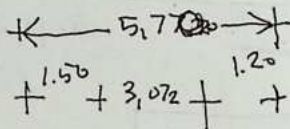 5,77
1.50 3,072 1.20